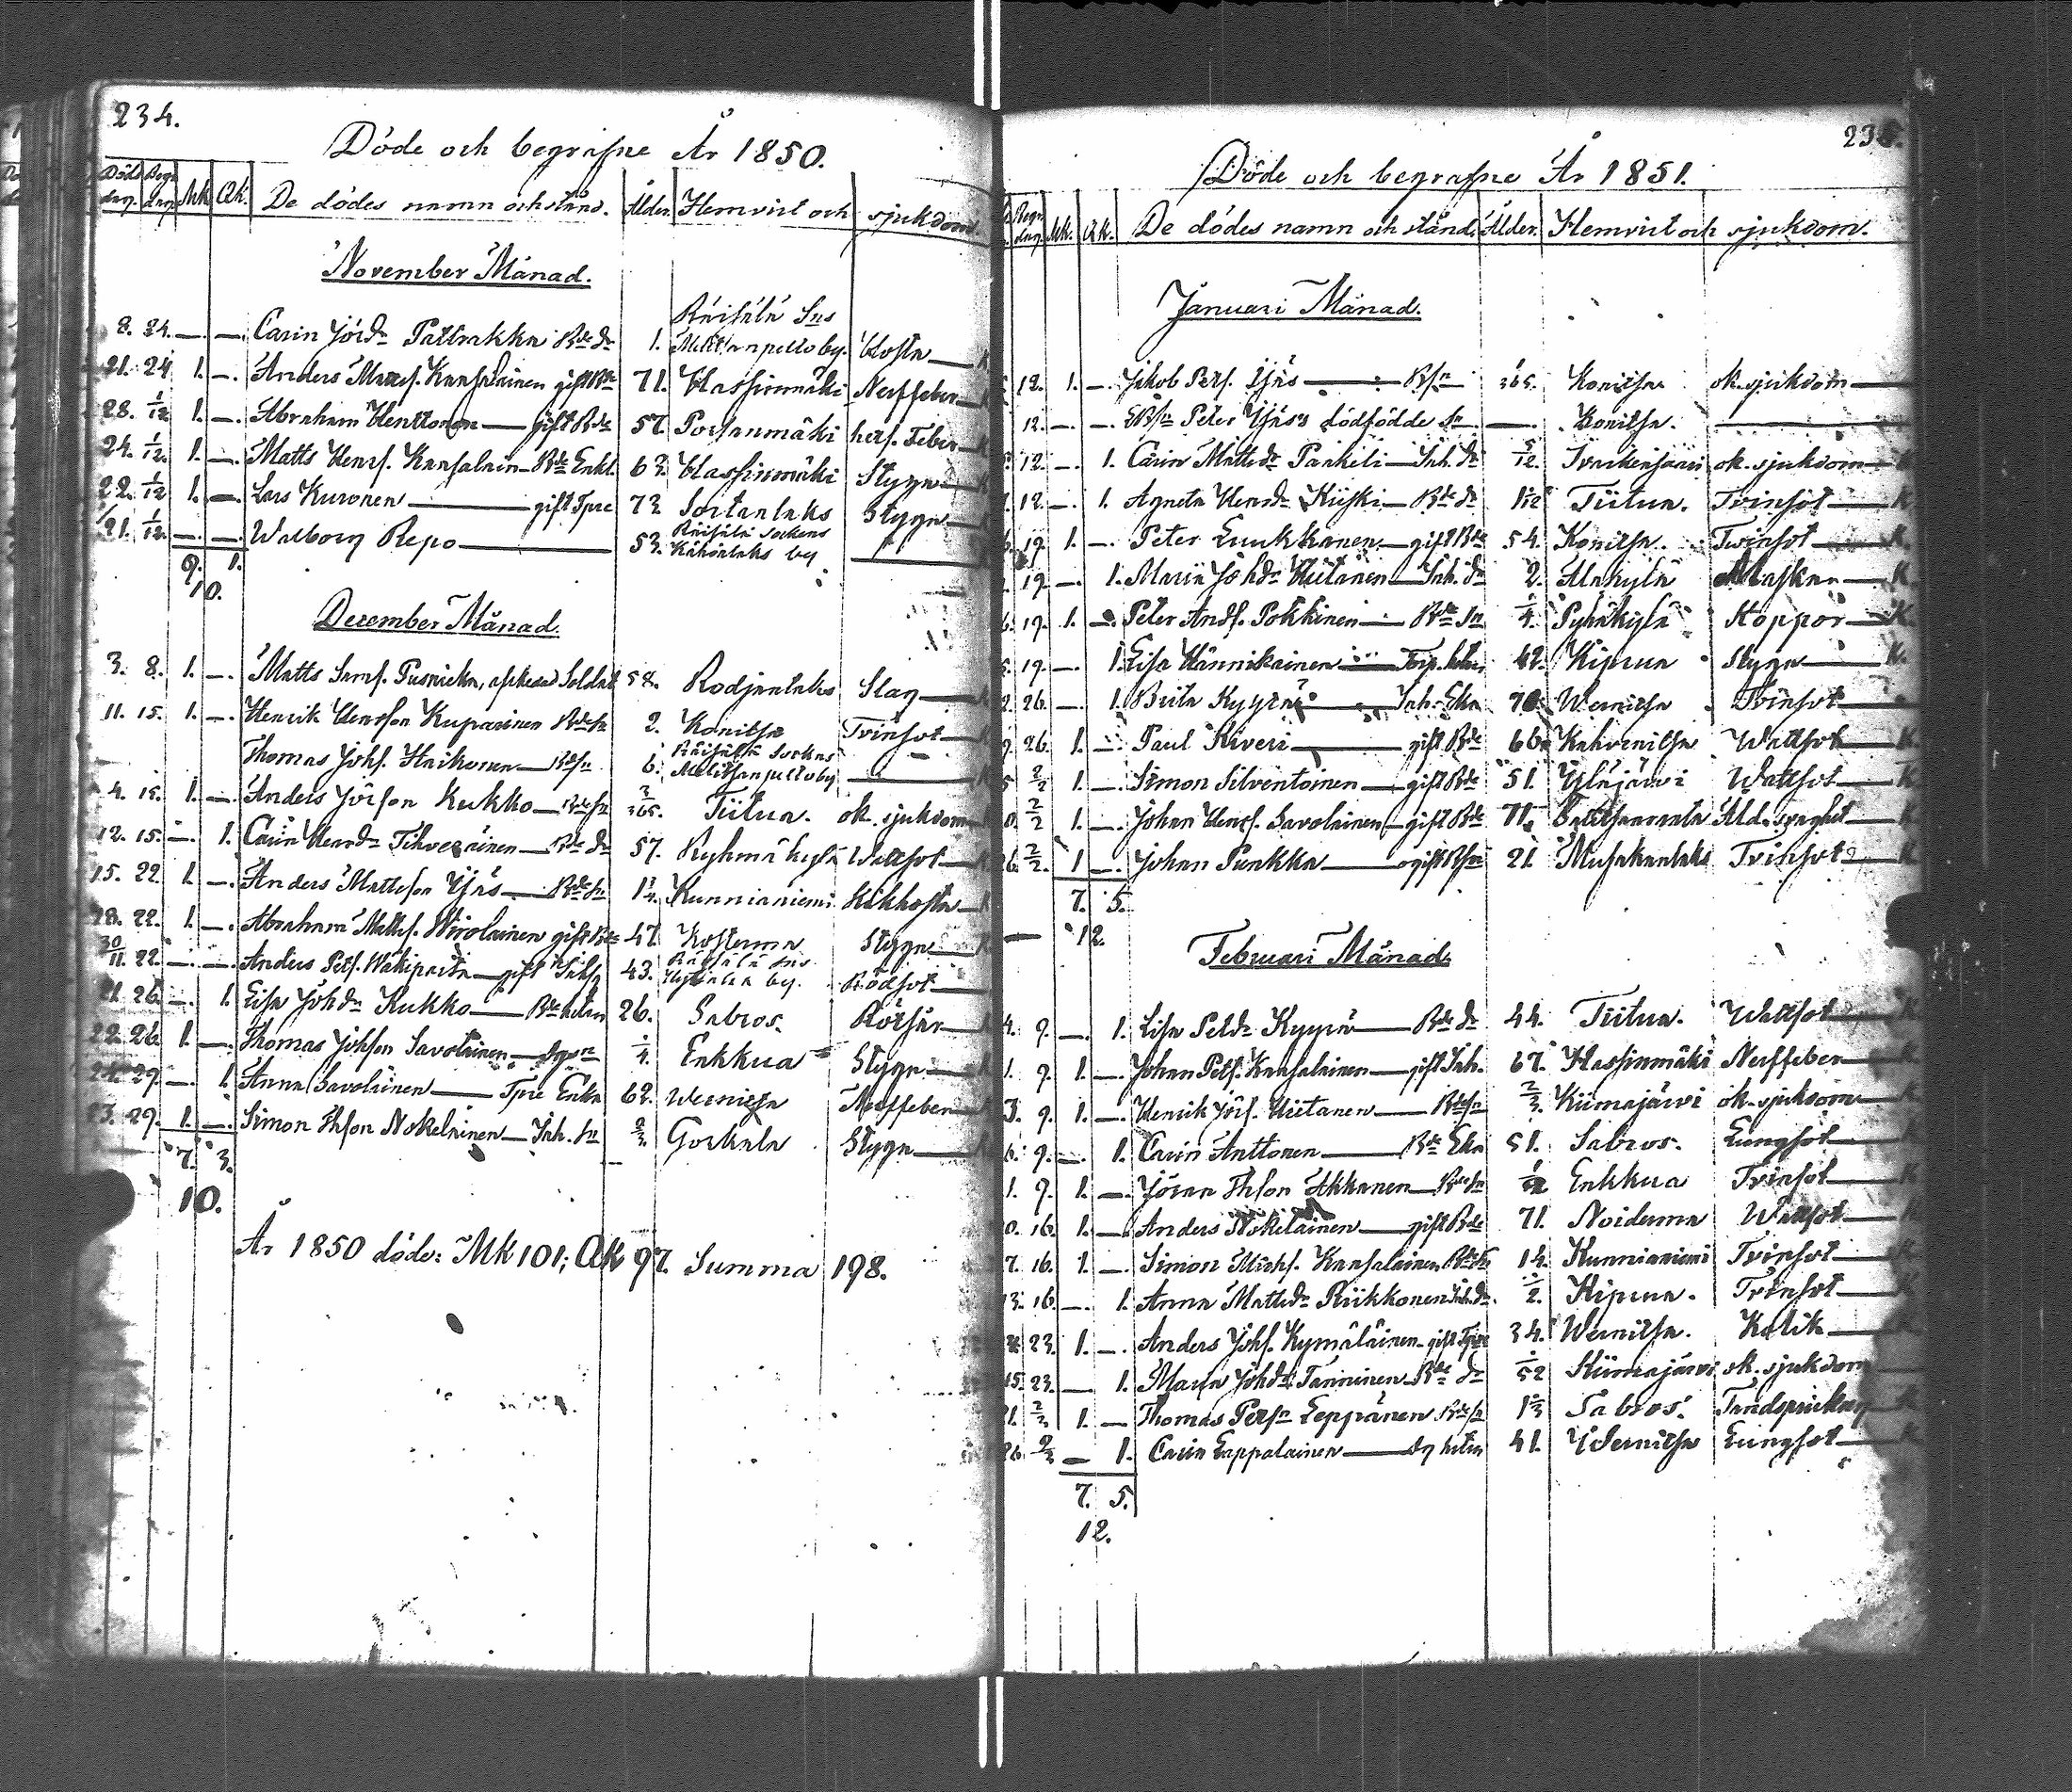 234.
Döde och begrafne År 1850.
Döds dag. Begr. dag. Mk. Qk. De dödes namn och stånd. Ålder. Hemvist och sjukdom.
November Månad.
Räisälä Sns
8. 24. —. —. Carin Jörsdr Pattrakka Bde dr 1. by. Hosta — K
21. 24. 1. —. Anders Kansalainen gift Bde 71. Hassinmäki Nerffeber — K
28. 1/12 1. —. Abraham Henttonen — gift Bde 57. Porsanmäki Feber — K
24. 1/12. 1. —. Matts Henrs. Kansalain — Bde Enkl. 63. Hassinmäki Stygn — K
22. 1/12 1. —. Lars Kuronen — gift Tpre 73. Sortanlaks Stygn — K
21. 1/12. —. —. Walborg Repo — 53. Räisälä Sockens by —
9. 1.
10.
December Månad.
3. 8. 1. —. Matts Pusnicka, afskedad Soldat 58. Rodjanlaks Slag — K
11. 15. 1. —. Henrik Henrsson Kuparinen Bde sn 2. Konitsa Tvinsot — K
Thomas Johs. Haikonen — Bde sn 6. Räisälä Sockns by —
4. 15. 1. —. Anders Jörsson Kukko — Bde sn 3/365. Tiitua. ok. sjukdom — K
12. 15. —. 1. Carin Henrsdr Tihveräinen — Bde dr 57. Ryhmäkylä Wattsot — K
15. 22. 1. —. Anders Mattsson Yjäs — Bde sn 1 1/4. Kunnianiemi Kikhosta — K
18. 22. 1. —. Abraham Matts. Wirolainen gift Bde 47. Kosterma Stygn — K
30/11. 22. —. —. Anders Pets. — gift 43. Räisälä Sns by. Rödsot —
21. 26. —. 1. Lisa Johdr Kukko — Bde hustru 26. Sabros. Rötsår — K
22. 26. 1. —. Thomas Johsson Savolainen — 1/4. Enkkua Stygn — K
24. 29. —. 1. Anna Savolainen — Tpre Enka 62. Wernitsa Nerffeber — K
23. 29. 1. —. Simon Thsson Nokelainen — Inh. sn 2/3. Gorkala Stygn — K
7. 3.
10.
År 1850 döde: Mk 101; Qk 97. Summa 198.
235.
Döde och begrafne År 1851.
Begr. dag. Mk. Qk. De dödes namn och stånd. Ålder. Hemvist och sjukdom.
Januari Månad.
12. 1. —. Jakob Pers. Yjäs — Bsn /365. Konitsa ok. sjukdom —
12. —. —. Peter Yjäs's dödfödde sn — Konitsa. —
12. —. 1. Carin Mattsdr Parkkli — Inh. dr 5/12. ok. sjukdom — K
12. —. 1. Agneta Henrsdr Kiiski — Bde dr Tiitua. Tvinsot — K
19. 1. —. Peter Luukkanen — gift Bde 54. Konitsa. Tvinsot — K.
19. —. 1. Maria Johdr Hiitanen — Inh. dr 2. Alakylä Maskar — K
19. 1. —. Peter Ands. Pokkinen — Bde sn 1/4. Pyhäkylä Koppor — K.
19. —. 1. Lisa Hännikäinen — Torp. hustru 42. Kipua Stygn — K.
26. —. 1. Brita Kyyrä — Inh. Eka 70. Wernitsa Tvinsot —
26. 1. —. Paul Kiveri — gift Bde 66. Kahvenitsa Wattsot — K
2/2 1. —. Simon Silventoinen — gift Bde 51. Yläjärvi Wattsot — K
2/2 1. —. Johan Henrs. Savolainen — gift Bde 71. Ålderd. svaghet — K
2/2. 1 —. Johan Punkka — gift Bsn 21. Musakanlaks Tvinsot — K
7. 5.
12.
Februari Månad.
4. 9. —. 1. Lisa Petdr Kyyrä — Bde dr 44. Tiitua. Wattsot — K
1. 9. 1. —. Johan Pets. Kansalainen — gift Inh. 67. Hassinmäki Nerffeber — K
3. 9. 1. —. Henrik Jörs. Hiitanen — Bde sn 2/3. Kiimajärvi ok. sjukdom — K
6. 9. —. 1. Carin Anttonen — Bde Eka 51. Sabros. Lungsot — K
1. 9. 1. —. Jöran Thsson Akkanen — Bde sn Enkkua Tvinsot — K
16. 1. —. Anders Nokelainen — gift Bde 71. Noiderma Wattsot — K
7. 16. 1. —. Simon Michs. Kansalainen Bde sn 14. Kunnianiemi Tvinsot — K
13. 16. —. 1. Anna Mattsdr Riikkonen Inh. dr. 1/2. Kipua. Tvinsot — K
23. 1. —. Anders Johs. Kymäläinen gift Tpre 34. Wernitsa. Kolik —
15. 23. —. 1. Maria Johdr Tanninen Bde dr 1/52 Kiimajärvi ok. sjukdom
21. 2/3 1. — Thomas Persn Leppänen Bde sn 1 2/3 Sabros. Tandsprickning
26. 2/3 —. 1. Carin Lappalainen — hustru 41. Wernitsa Lungsot —
7. 5.
12.